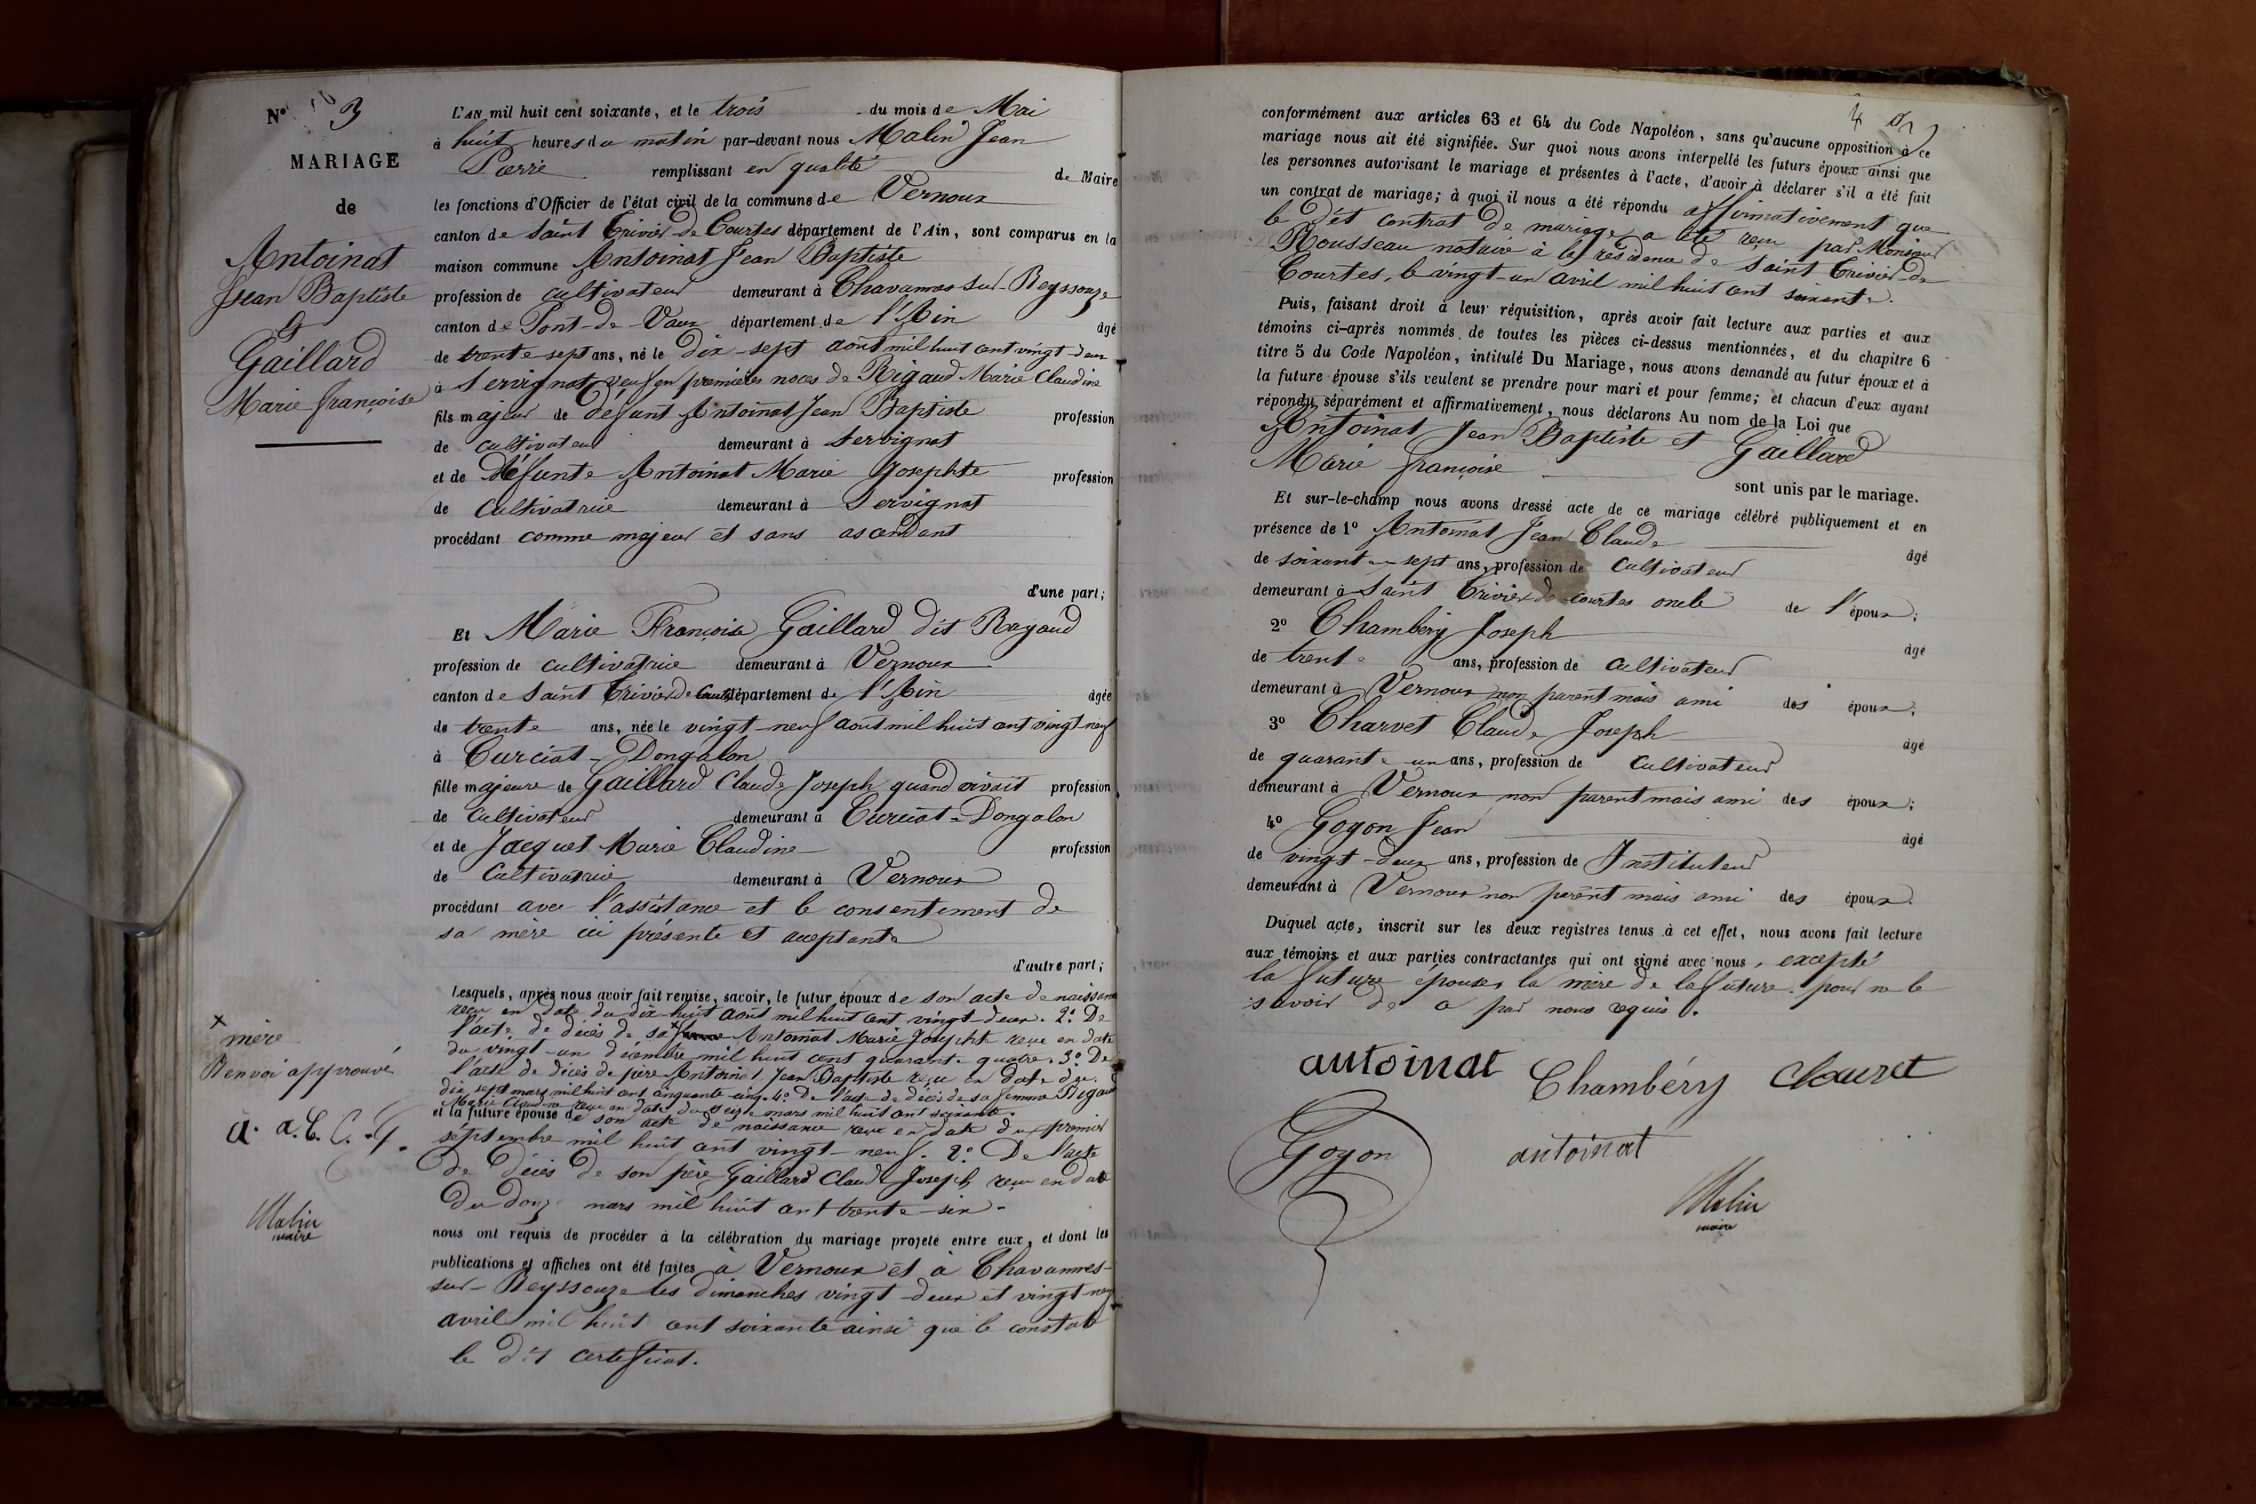 N° 3
MARIAGE
de
Antoinat
Jean Baptiste
et
Gaillard
Marie françoise
L'AN mil huit cent soixante, et le trois du mois de Mai
à huit heures du matin par-devant nous Malin Jean
Pierre remplissant en qualité de Maire
les fonctions d'Officier de l'état civil de la commune de Vernoux
canton de Saint Trivier de Courtes département de l'Ain, sont comparus en la
maison commune Antoinat Jean Baptiste
profession de cultivateur demeurant à Chavannes sur-Reyssouze
canton de Pont-de-Vaux département de l'Ain âgé
de trente-sept ans, né le Dix-sept août mil huit cent vingt-deux
à Servignat, veuf en premières noces de Rigaud Marie Claudine
fils majeur de défunt Antoinat Jean Baptiste profession
de cultivateur demeurant à Servignat
et de Défunte Antoinat Marie Josephte profession
de Cultivatrice demeurant à Servignat
procédant comme majeur et sans ascendant
d'une part;
Et Marie Françoise Gaillard dit Rayaud
profession de cultivatrice demeurant à Vernoux
canton de Saint Trivier de Courtes département de l'Ain âgée
de trente ans, née le vingt-neuf août mil huit cent vingt neuf
à Curciat-Dongalon
fille majeure de Gaillard Claude Joseph quand vivait profession
de Cultivateur demeurant à Curciat-Dongalon
et de Jacquet Marie Claudine profession
de Cultivatrice demeurant à Vernoux
procédant avec l'assistance et le consentement de
sa mère ici présente et acceptante
d'autre part;
Lesquels, après nous avoir fait remise, savoir, le futur époux de son acte de naissance
reçu en date du dix-huit août mil huit cent vingt deux. 2° De
l'acte de décès de sa × Antoinat Marie Josephte reçu en date
du vingt-un décembre mil huit cent quarante quatre. 3° De
l'acte de décès de père Antoinat Jean Baptiste reçu en date du
dix sept mars mil huit cent cinquante cinq. 4° De l'acte de décès de sa femme Rigaud
Marie Claudine reçu en date du seize mars mil huit cent soixante.
et la future épouse de son acte de naissance reçu en date du premier
septembre mil huit cent vingt-neuf. 2° De l'acte
de Décès de son père Gaillard Claude Joseph reçu en date
du douze mars mil huit cent trente-six.
nous ont requis de procéder à la célébration du mariage projeté entre eux, et dont les
publications et affiches ont été faites à Vernoux et à Chavannes-
sur-Reyssouze les dimanches vingt-deux et vingt-neuf
avril mil huit cent soixante ainsi que le constate
le dit certificat.
× mère
Renvoi approuvé
a. a. C. C. G.
Malin
maire
conformément aux articles 63 et 64 du Code Napoléon, sans qu'aucune opposition à ce
mariage nous ait été signifiée. Sur quoi nous avons interpellé les futurs époux ainsi que
les personnes autorisant le mariage et présentes à l'acte, d'avoir à déclarer s'il a été fait
un contrat de mariage; à quoi il nous a été répondu affirmativement que
le dit contrat de mariage a été reçu par Monsieur
Rousseau notaire à la résidence de Saint Trivier de
Courtes, le vingt-un avril mil huit cent soixante.
Puis, faisant droit à leur réquisition, après avoir fait lecture aux parties et aux
témoins ci-après nommés de toutes les pièces ci-dessus mentionnées, et du chapitre 6
titre 5 du Code Napoléon, intitulé Du Mariage, nous avons demandé au futur époux et à
la future épouse s'ils veulent se prendre pour mari et pour femme; et chacun d'eux ayant
répondu séparément et affirmativement, nous déclarons Au nom de la Loi que
Antoinat Jean Baptiste et Gaillard
Marie françoise sont unis par le mariage.
Et sur-le-champ nous avons dressé acte de ce mariage célébré publiquement et en
présence de 1° Antoinat Jean Claude âgé
de soixante-sept ans, profession de Cultivateur
demeurant à Saint Trivier de courtes oncle de l'époux;
2° Chambéry Joseph âgé
de trente ans, profession de cultivateur
demeurant à Vernoux non parent mais ami des époux;
3° Charvet Claude Joseph âgé
de quarante-un ans, profession de Cultivateur
demeurant à Vernoux non parent mais ami des époux;
4° Goyon Jean âgé
de vingt-deux ans, profession de Instituteur
demeurant à Vernoux non parent mais ami des époux.
Duquel acte, inscrit sur les deux registres tenus à cet effet, nous avons fait lecture
aux témoins et aux parties contractantes qui ont signé avec nous, excepté
la future épouse, la mère de la future pour ne le
savoir de ce par nous requis.
antoinat Chambéry
Goyon antoinat
Malin
maire